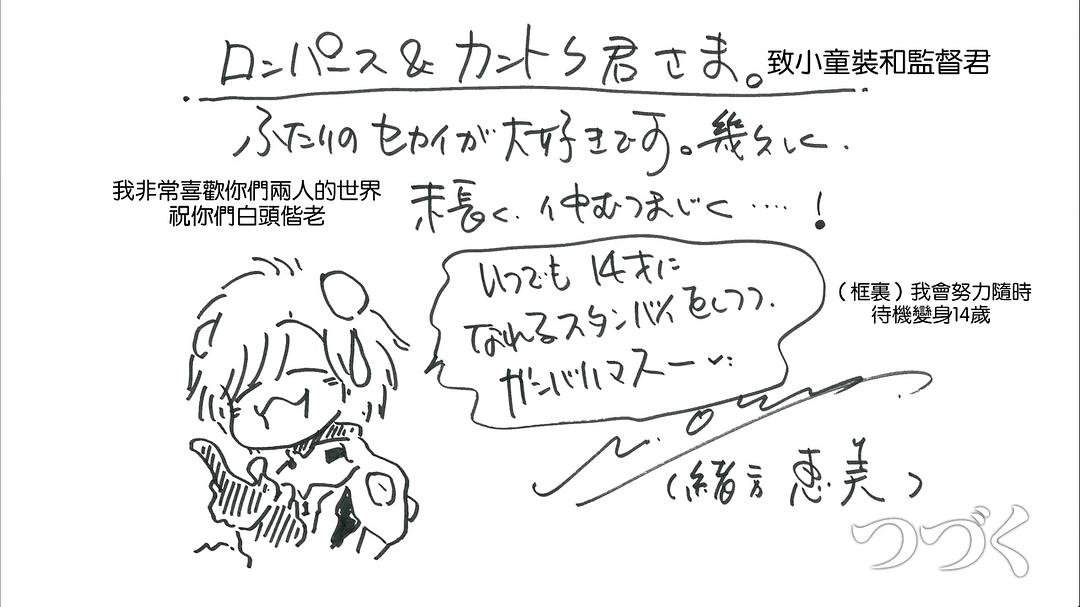 ロンパース&カントク君さま。
致小童裝和監督君
ふたりのセカイが大好きです。幾久しく.
我非常喜歡你們兩人的世界
祝你們白頭偕老
末長く、仲むつまじく‥‥!
いつでも 14才に
なれるスタンバイをしつつ、
ガンバリマスー
(框裏)我會努力隨時
待機變身14歲
(緒方 恵美)
つづく